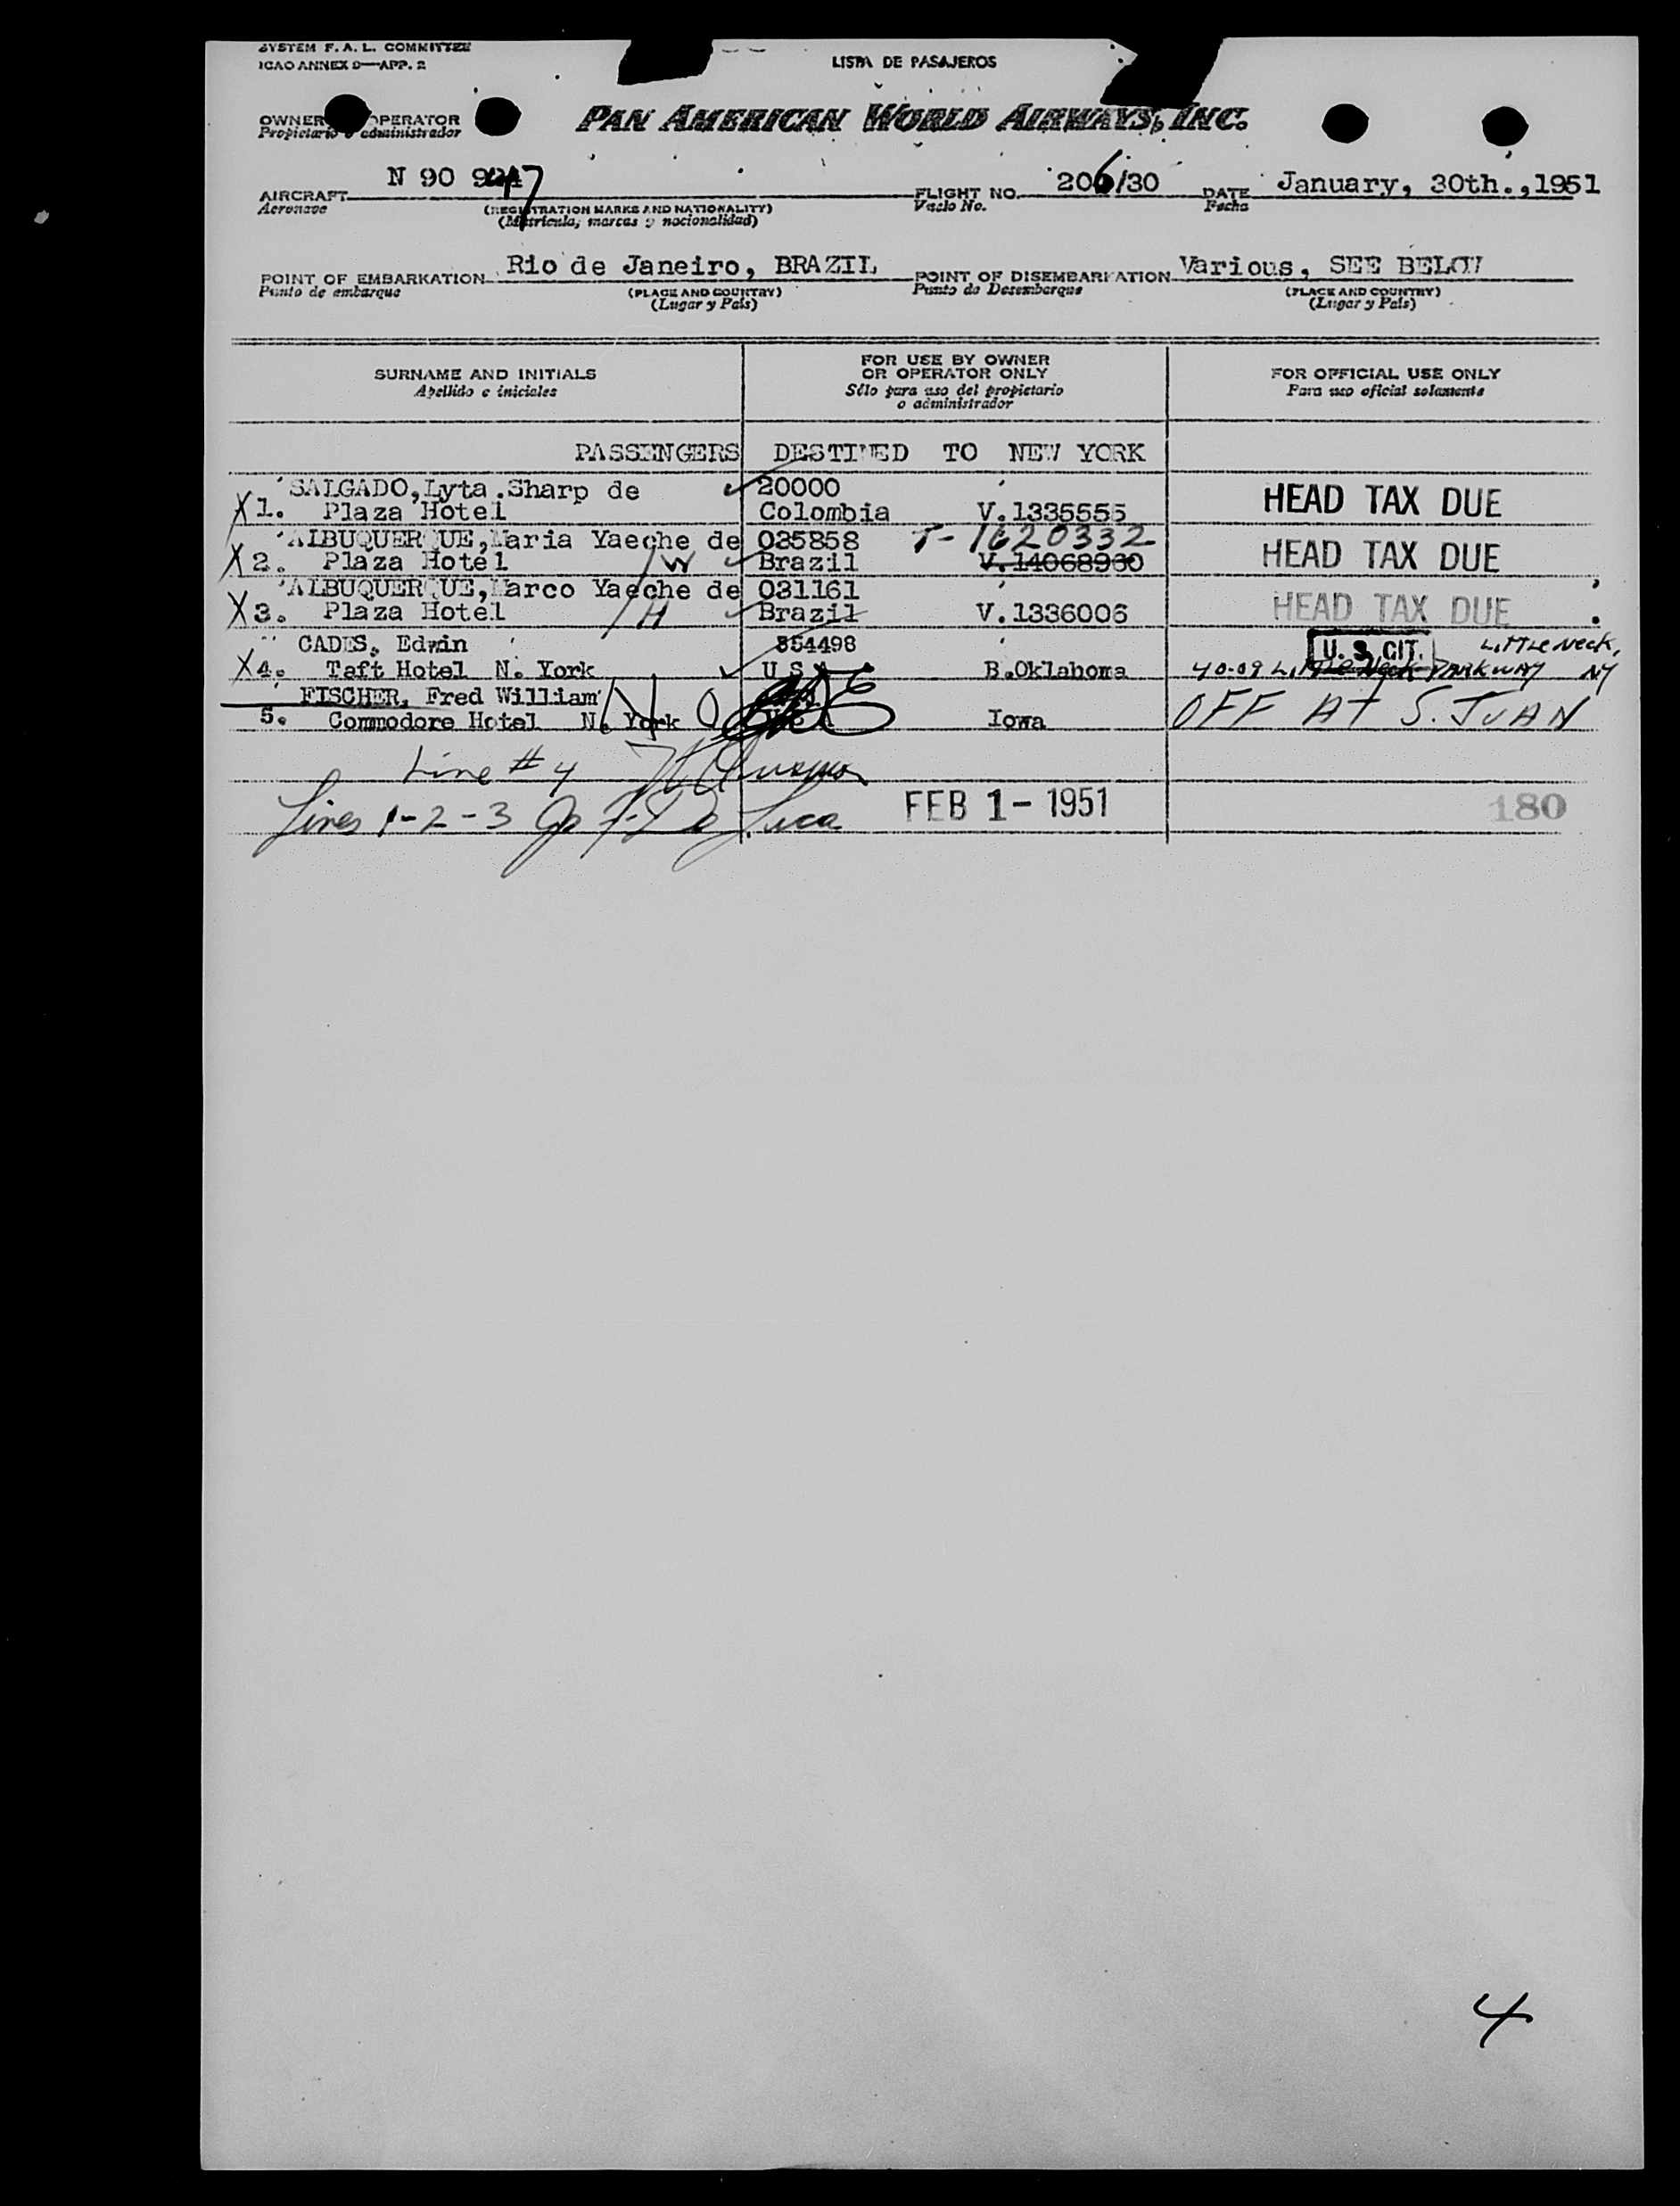 SYSTEM F. A. L. COMMITTEE
ICAO ANNEX 9—APP. 2
LISTA DE PASAJEROS
OWNER OPERATOR
Propietario o administrador
PAN AMERICAN WORLD AIRWAYS, INC.
AIRCRAFT N 90 947 FLIGHT NO. 206/30 DATE January, 30th.,1951
Aeronave (REGISTRATION MARKS AND NATIONALITY) Vuelo No. Fecha
(Matrícula, marcas y nacionalidad)
POINT OF EMBARKATION Rio de Janeiro, BRAZIL POINT OF DISEMBARKATION Various, SEE BELOW
Punto de embarque (PLACE AND COUNTRY) Punto de Desembarque (PLACE AND COUNTRY)
(Lugar y País) (Lugar y País)
SURNAME AND INITIALS
Apellido e iniciales
FOR USE BY OWNER
OR OPERATOR ONLY
Sólo para uso del propietario
o administrador
FOR OFFICIAL USE ONLY
Para uso oficial solamente
PASSENGERS DESTINED TO NEW YORK
SALGADO, Lyta Sharp de 20000
X1. Plaza Hotel Colombia V.1335555 HEAD TAX DUE
ALBUQUERQUE, Maria Yaeche de 035858 T-1620332
X2. Plaza Hotel W Brazil V.14068960 HEAD TAX DUE
ALBUQUERQUE, Marco Yaeche de 031161
X3. Plaza Hotel H Brazil V.1336006 HEAD TAX DUE
CADES, Edwin 354498 U. S. CIT. Little Neck,
X4. Taft Hotel N. York U S A B.Oklahoma 40-09 Little Neck PARKWAY NY
FISCHER, Fred William
5. Commodore Hotel N. York Iowa OFF AT S. JUAN
Line # 4
Lines 1-2-3 FEB 1 - 1951 180
4